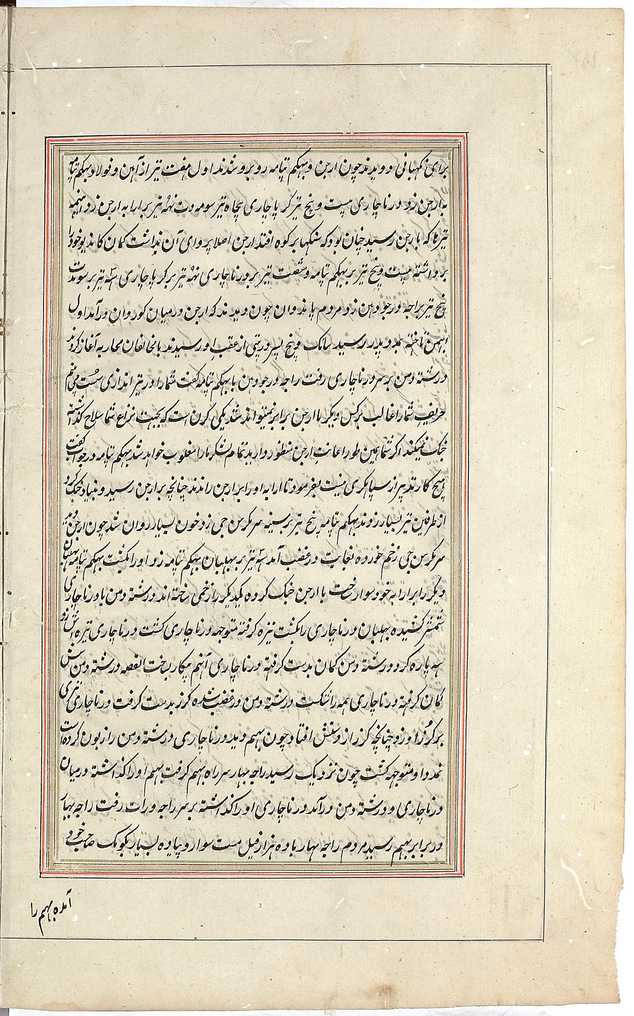 برای نگهبانی او دویدند چون ارجن و بهیکم پتامه روبرو شدند اول هفت تیر از آهن و فولاد بهیکم پتامه
به ارجن زد درناچاری بیست و پنج تیر کرپاچاری پنجاه تیر سومه دت نهه تیر برابر به ارجن زدند همه
تیرها که بارجن رسید چنان بود که سنگها بر کوه افتد ارجن اصلا پروای آن نداشت کمان کاندیو خود را
برداشته بیست و پنج تیر بر بهیکم پتامه و شصت تیر بر درناچاری نهه تیر بر کرپاچاری سه تیر بر سومدت
پنج تیر براجه درجودهن زد و مردم پاندوان چون دیدند که ارجن در میان کوروان درآمد اول
ابهمن تاخته بمدد پدر رسید ساتک و پنج پسر درپتی از عقب او رسیدند با مخالفان محاربه آغاز کردند
درشته دمن بر سر درناچاری رفت راجه درجودهن با بهیکم پتامه گفت شما را در تیراندازی سست می بینم
حریف شما را غالب نرکس دیگر با ارجن برابر نمیتواند شد یکی کرن است که بجهت نزاع شما سلاح گذاشته
جنگ نمیکند اگر شما همین طور اعانت ارجن منظور دارید تمام لشکر ما را مغلوب خواهد شد بهیکم پتامه در جواب گفت
هیچ کار بدتر از سپاهگری نیست بفرمود تا ارابه او را برابر ارجن راندند چنانچه برابر ارجن رسید و بنیاد جنگ کرد
از طرفین تیر بسیار زدند بهیکم پتامه پنج تیر بر سینه سرکرشن جی زد خون بسیار روان شد چون ارجن دید
سرکرشن جی زخم خورده بغایت در غضب آمد سه تیر بر بهلبان بهیکم پتامه زد او را بکشت بهیکم پتامه بهلبان
دیگر را برارابه خود سوار ساخت با ارجن جنگ کرده یکدیگر را زخمی ساخته اند درشته دمن با درناچاری
شمشیر کشیده بهلبان درناچاری را بکشت نیزه گرفته متوجه درناچاری گشت درناچاری نیزه اش زد
سه پاره کرد درشته دمن کمان بدست گرفته درناچاری آنهم بیکار ساخت القصه درشته دمن شش
کمان گرفته درناچاری همه را شکست درشته دمن در غضب شده گرز بدست گرفت درناچاری تیری
بر گرز او زد چنانچه گرز از دستش افتاد چون بهیم دید درناچاری درشته دمن را زبون کرده است
بمدد او متوجه گشت چون نزدیک رسید راجه بهار سر راه بهیم گرفت بهیم او را گذاشته درمیان
درناچاری و درشته دمن درآمد درناچاری او را گذاشته بر سر راجه ورات رفت راجه بهار
در برابر بهیم رسید مردم راجه بهار با ده هزار فیل مست سوار و پیاده بسیار بکومک صاحب خود
آمده بهیم را